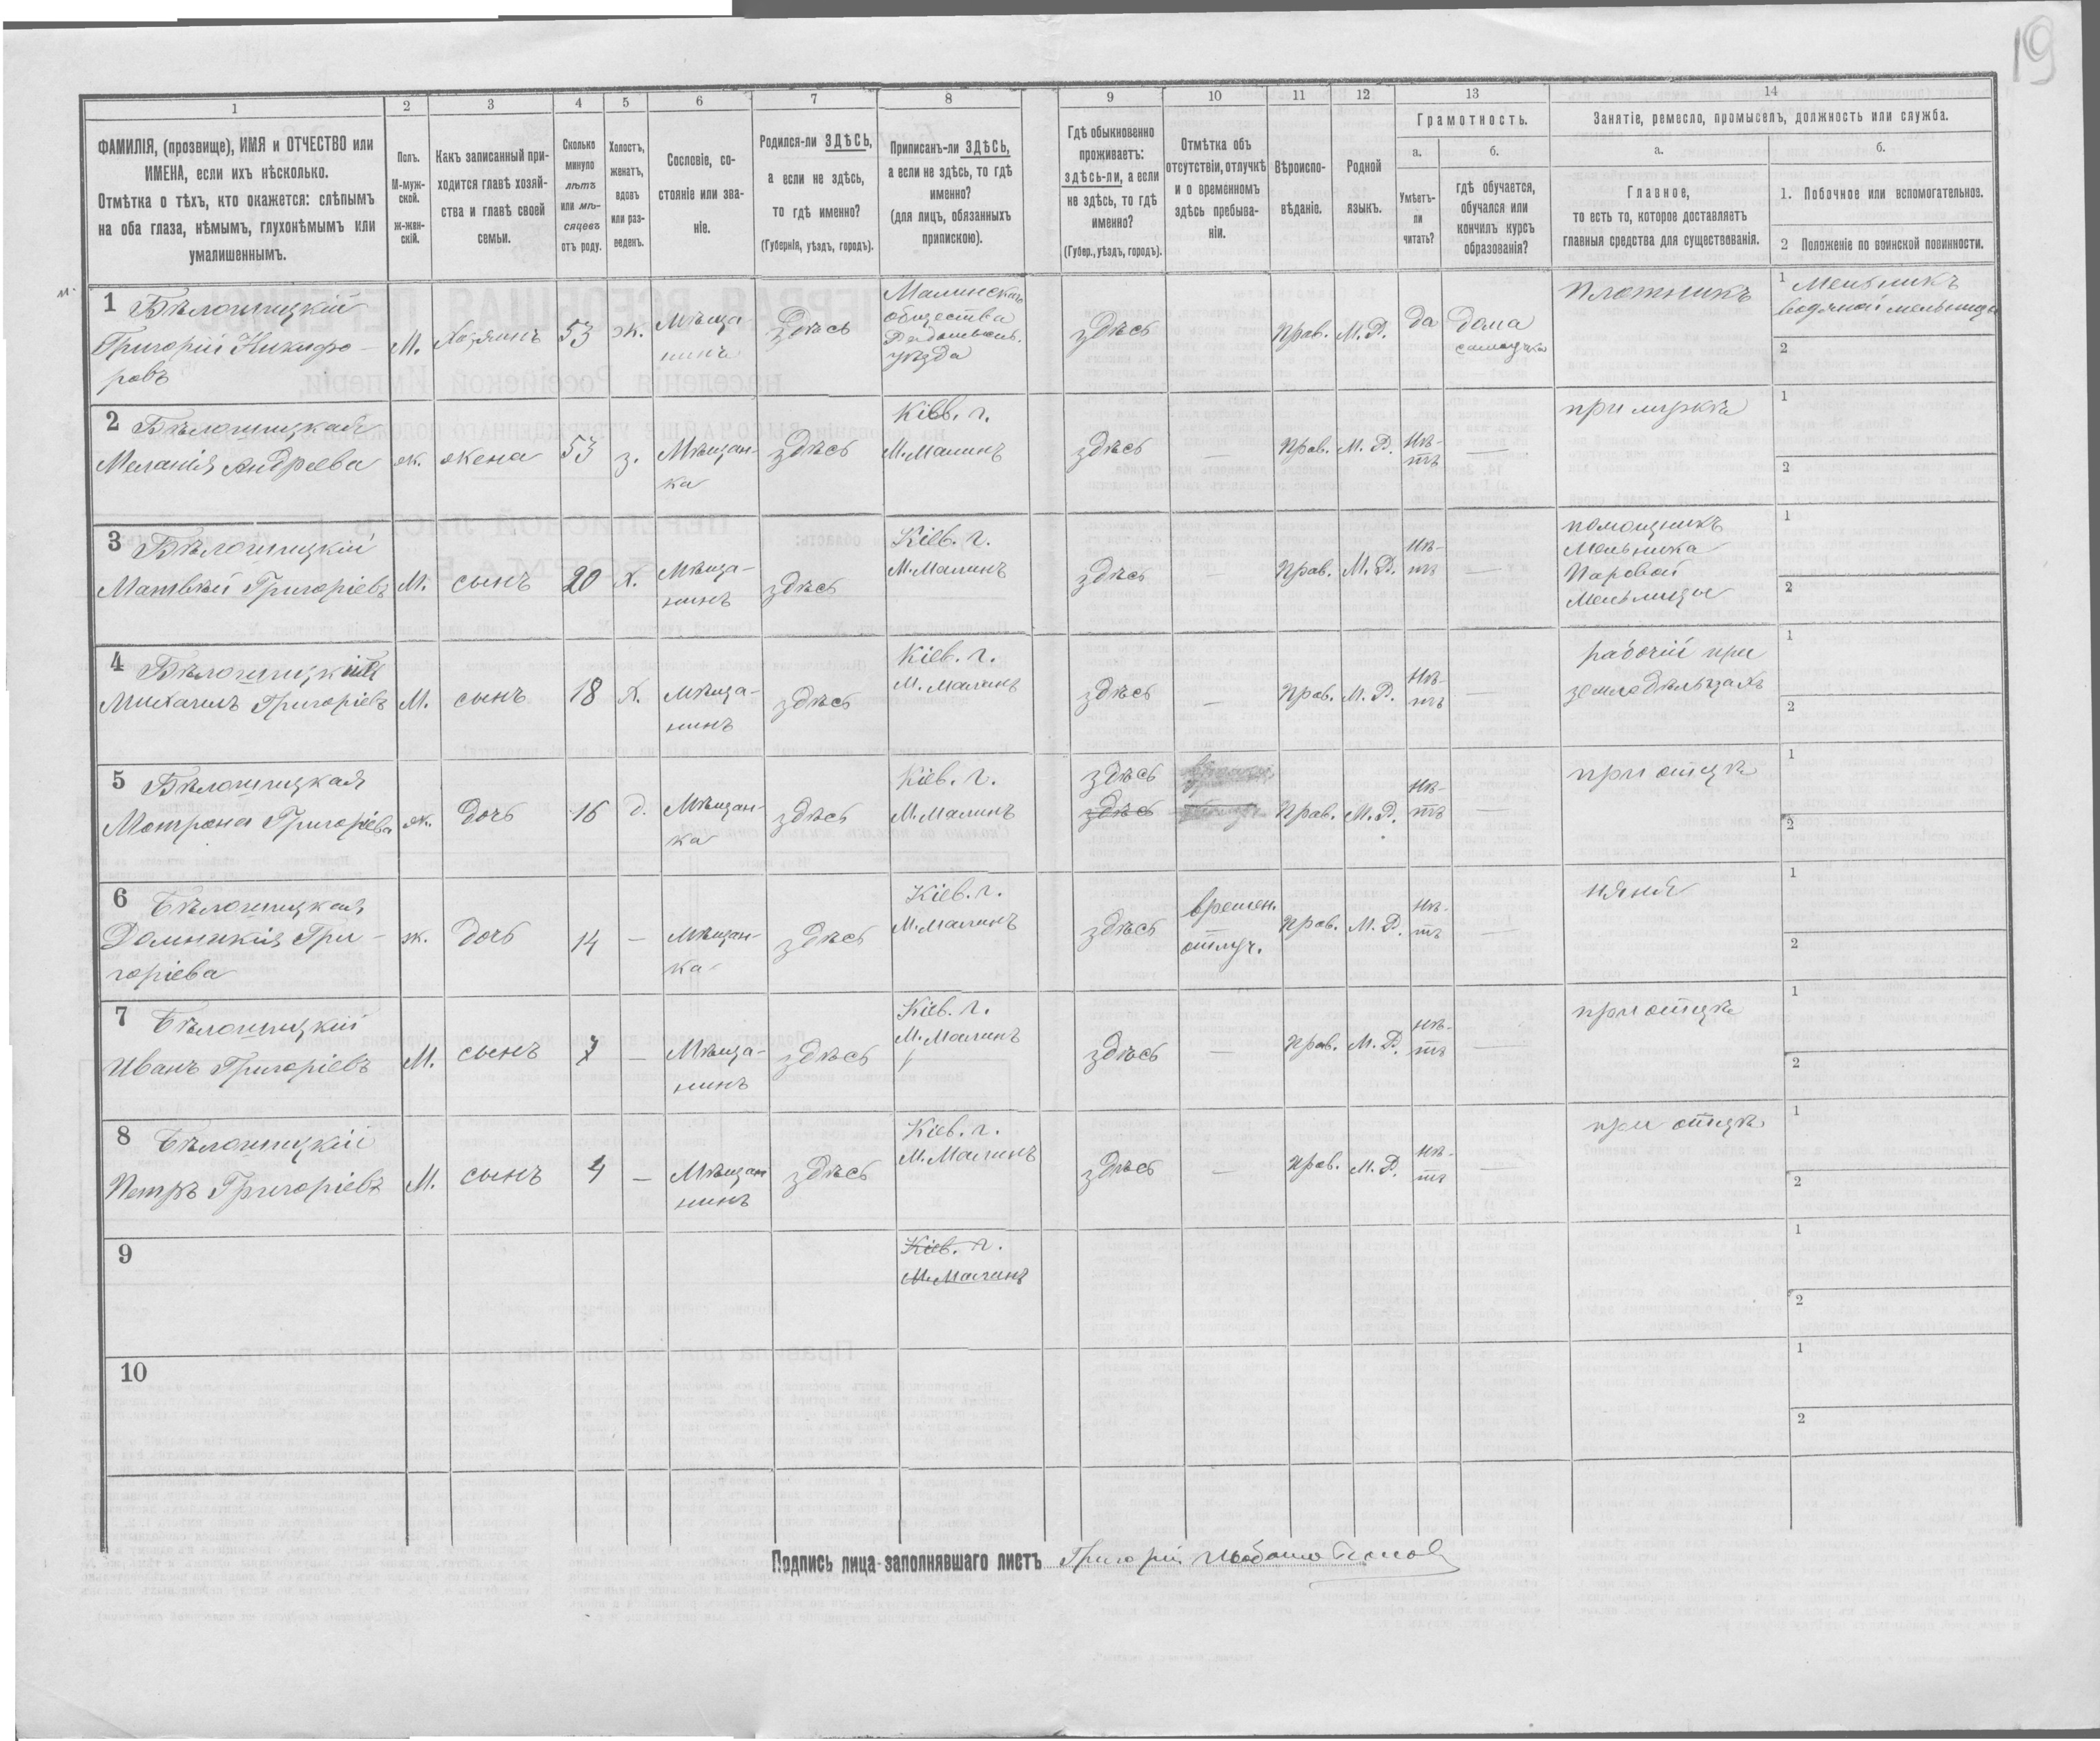 19
1
2
3
4
5
6
7
8
9
10
11
12
13
14
ФАМИЛІЯ, (прозвище), ИМЯ и ОТЧЕСТВО или
ИМЕНА, если ихъ нѣсколько.
Отмѣтка о тѣхъ, кто окажется: слѣпымъ
на оба глаза, нѣмымъ, глухонѣмымъ или
умалишеннымъ.
Полъ.
М-муж-
ской.
ж-жен-
скій.
Какъ записанный при-
ходится главѣ хозяй-
ства и главѣ своей
семьи.
Сколько
минуло
лѣтъ
или мѣ-
сяцевъ
отъ роду.
Холостъ,
женатъ,
вдовъ
или раз-
веденъ.
Сословіе, со-
стояніе или зва-
ніе.
Родился-ли ЗДѢСЬ,
а если не здѣсь,
то гдѣ именно?
(Губернія, уѣздъ, городъ).
Приписанъ-ли ЗДѢСЬ,
а если не здѣсь, то гдѣ
именно?
(для лицъ, обязанныхъ
припискою).
Гдѣ обыкновенно
проживаетъ:
здѣсь-ли, а если
не здѣсь, то гдѣ
именно?
(Губер., уѣздъ, городъ).
Отмѣтка объ
отсутствіи, отлучкѣ
и о временномъ
здѣсь пребыва-
ніи.
Вѣроиспо-
вѣданіе.
Родной
языкъ.
Грамотность.
а.
Умѣетъ-
ли
читать?
б.
гдѣ обучается,
обучался или
кончилъ курсъ
образованія?
Занятіе, ремесло, промыселъ, должность или служба.
а.
Главное,
то есть то, которое доставляетъ
главныя средства для существованія.
б.
1. Побочное или вспомогательное.
2 Положеніе по воинской повинности.
1 Бѣлошицкій
Григорій Никифо-
ровъ
М.
Хозяинъ
53
ж.
Мѣща
нинъ
Здѣсь
Малинскаго
общества
Радомысль.
уѣзда
здѣсь
Прав.
М.Р.
да
дома
самоучка
плотникъ
1 Мельникъ
водяной мельницы
2
2 Бѣлошицкая
Меланія Андреева
ж.
жена
53
з.
Мѣщан-
ка
здѣсь
Кіев. г.
М. Малинъ
здѣсь
—
Прав.
М. Р.
Нѣ-
тъ
—
при мужѣ
1
2
3 Бѣлошицкій
Матвѣй Григоріевъ
М.
сынъ
20
х.
Мѣща-
нинъ
здѣсь
Кіев. г.
М. Малинъ
здѣсь
—
Прав.
М. Р.
Нѣ-
тъ
—
помощникъ
Мельника
Паровой
Мельницы
1
2
4 Бѣлошицкій
Михаилъ Григоріевъ
М.
сынъ
18
х.
мѣща-
нинъ
здѣсь
Кіев. г.
М. Малинъ
здѣсь
—
Прав.
М. Р.
Нѣ-
тъ
—
рабочій при
земледѣльцахъ
1
2
5 Бѣлошицкая
Мотрона Григоріева
ж.
дочь
16
д.
Мѣщан-
ка
здѣсь
Кіев. г.
М. Малинъ
здѣсь
здѣсь
Прав.
М. Р.
Нѣ-
тъ
—
при отцѣ
1
2
6 Бѣлошицкая
Домникія Гри-
горіева
ж.
дочь
14
—
Мѣщан-
ка
здѣсь
Кіев. г.
М. Малинъ
здѣсь
времен.
отлуч.
Прав.
М. Р.
Нѣ-
тъ
—
няня
1
2
7 Бѣлошицкій
Иванъ Григоріевъ
М.
сынъ
7
—
Мѣща-
нинъ
здѣсь
Кіев. г.
М. Малинъ
здѣсь
—
Прав.
М. Р.
Нѣ-
тъ
—
при отцѣ
1
2
8 Бѣлошицкій
Петръ Григоріевъ
М.
сынъ
4
—
Мѣщан
нинъ
здѣсь
Кіев. г.
М. Малинъ
здѣсь
—
Прав.
М. Р.
Нѣ-
тъ
—
при отцѣ
1
2
9
Кіев. г.
М. Малинъ
1
2
10
1
2
Подпись лица заполнявшаго листъ Григорій